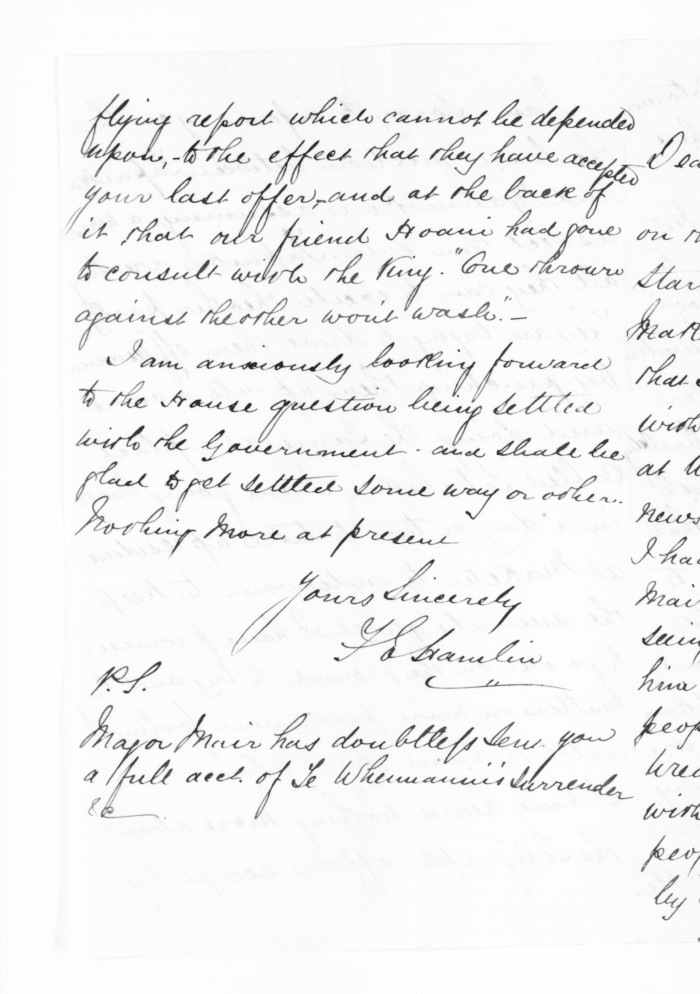 flying report which cannot be depended
upon, - to the effect that they have accepted
your last offer, and at the back of
it, that our friend Hoani had gone
to consult with the King. "One thrown
against the other wont wash". -
I am anxiously looking forward
to the House question being settled
with the Government - and shall be
glad to get settled some way or other.
Nothing more at present
Yours Sincerely
F E Hamlin
P.S.
Major Mair has doubtless sent you
a full acct. of Te surrender
&c
on
that
with
at
I ha
Mai
him
peop
with
peop
by